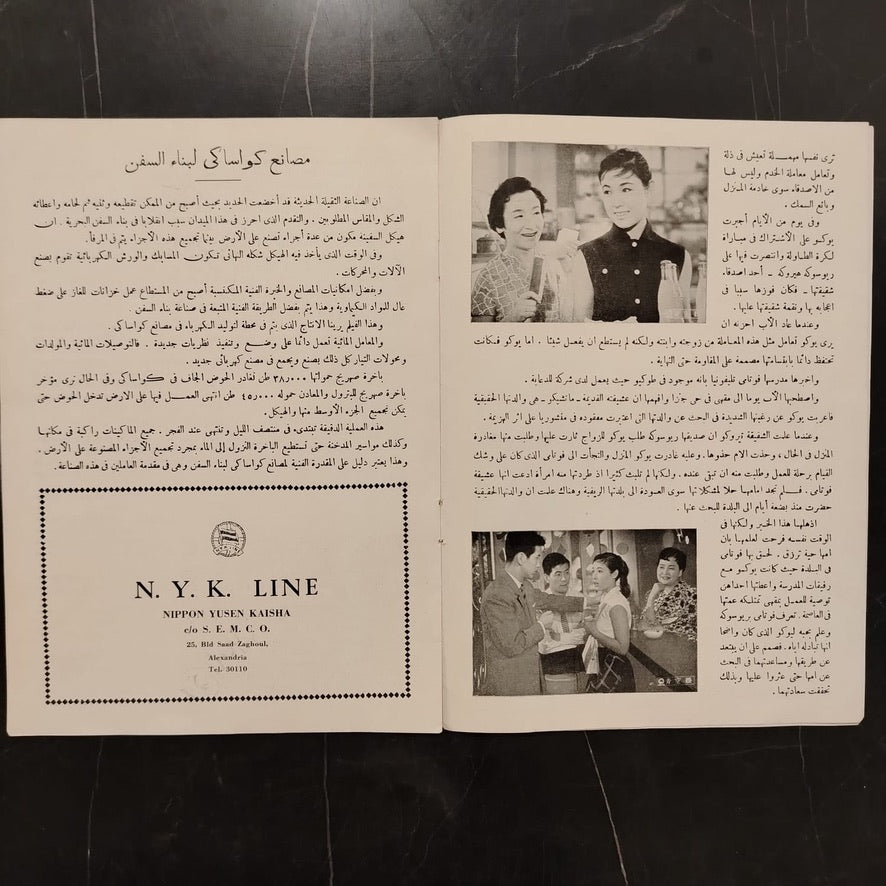 مصانع كواساكى لبناء السفن
ان الصناعة الثقيلة الحديثة قد أخضعت الحديد بحيث أصبح من الممكن تقطيعه وثنيه ثم لحامه واعطائه
الشكل والمقاس المطلوبين . والتقدم الذى احرز فى هذا الميدان سبب انقلابا فى بناء السفن البحرية . ان
هيكل السفينة مكون من عدة أجزاء تصنع على الأرض بينما تجميع هذه الأجزاء يتم فى المرفأ.
وفى الوقت الذى يأخذ فيه الهيكل شكله النهائى تكون المسابك والورش الكهربائية تقوم بصنع
الآلات والمحركات .
وبفضل امكانيات المصانع والخبرة الفنية المكتسبة أصبح من المستطاع عمل خزانات للغاز على ضغط
عال للمواد الكيماوية وهذا يتم بفضل الطريقة الفنية المتبعة فى صناعة بناء السفن .
وهذا الفيلم يرينا الانتاج الذى يتم فى محطة لتوليد الكهرباء فى مصانع كواساكى .
والمعامل المائية تعمل دائما على وضع وتنفيذ نظريات جديدة . فالتوصيلات المائية والمولدات
ومحولات التيار كل ذلك يصنع ويجمع فى مصنع كهربائى جديد .
باخرة صهريج حمولتها ٣٨٫٠٠٠ طن تغادر الحوض الجاف فى كواساكى وفى الحال نرى مؤخر
باخرة صهريج للبترول والمعادن حموله ٤٥٫٠٠٠ طن انتهى العمل فيها على الارض تدخل الحوض حتى
يمكن تجميع الجزء الأوسط منها والهيكل.
هذه العملية الدقيقة تبتدىء فى منتصف الليل وتنتهى عند الفجر . جميع الماكينات راكبة فى مكانها
وكذلك مواسير المدخنة حتى تستطيع الباخرة النزول إلى الماء بمجرد تجميع الأجزاء المصنوعة على الأرض .
وهذا يعتبر دليل على المقدرة الفنية لمصانع كواساكى لبناء السفن وهى فى مقدمة العاملين فى هذه الصناعة .
N. Y. K. LINE
NIPPON YUSEN KAISHA
c/o S. E. M. C. O.
25, Bld Saad Zaghoul,
Alexandria
Tel. 30110
ترى نفسها مهملة تعيش فى ذلة
وتعامل معاملة الخدم وليس لها
من الاصدقاء سوى خادمة المنزل
وبائع السمك .
وفى يوم من الأيام أجبرت
يوكو على الاشتراك فى مباراة
لكرة الطاولة وانتصرت فيها على
ريوسوكه هيروكه - أحد اصدقاء
شقيقتها - فكان فوزها سببا فى
اعجابه بها ونقمة شقيقتها عليها .
وعندما عاد الأب احزنه ان
يرى يوكو تعامل مثل هذه المعاملة من زوجته وابنته ولكنه لم يستطع ان يفعل شيئا . اما يوكو فكانت
تحتفظ دائما بابتسامتها مصممة على المقاومة حتى النهاية .
واخبرها مدرسها فوتامى تليفونيا بانه موجود فى طوكيو حيث يعمل لدى شركة للدعاية .
واصطحبها الأب يوما الى مقهى فى حى جنزا وافهمها ان عشيقته القديمة - ماتشيكو - هى والدتها الحقيقية
فاعربت يوكو عن رغبتها الشديدة فى البحث عن والدتها التى اعتبرت مفقودة فى مقشوريا على اثر الهزيمة .
وعندما علمت الشقيقة تيروكو ان صديقها ريوسوكه طلب يوكو للزواج ثارت عليها وطلبت منها مغادرة
المنزل فى الحال ، وحذت الام حذوها . وعليه غادرت يوكو المنزل والتجأت الى فوتامى الذى كان على وشك
القيام برحلة للعمل وطلبت منه ان تبقى عنده . ولكنها لم تلبث كثيرا اذ طردتها منه امرأة ادعت انها عشيقة
فوتامى . فلم تجد امامها حلا لمشكلاتها سوى العودة الى بلدتها الريفية وهناك علمت ان والدتها الحقيقية
حضرت منذ بضعة أيام الى البلدة للبحث عنها .
اذهلها هذا الخبر ولكنها فى
الوقت نفسه فرحت لعلمها بان
امها حية ترزق . لحق بها فوتامى
فى البلدة حيث كانت يوكو مع
رفيقات المدرسة واعطتها احداهن
توصية للعمل بمقهى تمتلكه عمتها
فى العاصمة . تعرف فوتامى بريوسوكه
وعلم بحبه ليوكو الذى كان واضحا
انها تبادله اياه . فصمم على ان يبتعد
عن طريقها ومساعدتهما فى البحث
عن امها حتى عثروا عليها وبذلك
تحققت سعادتهما .